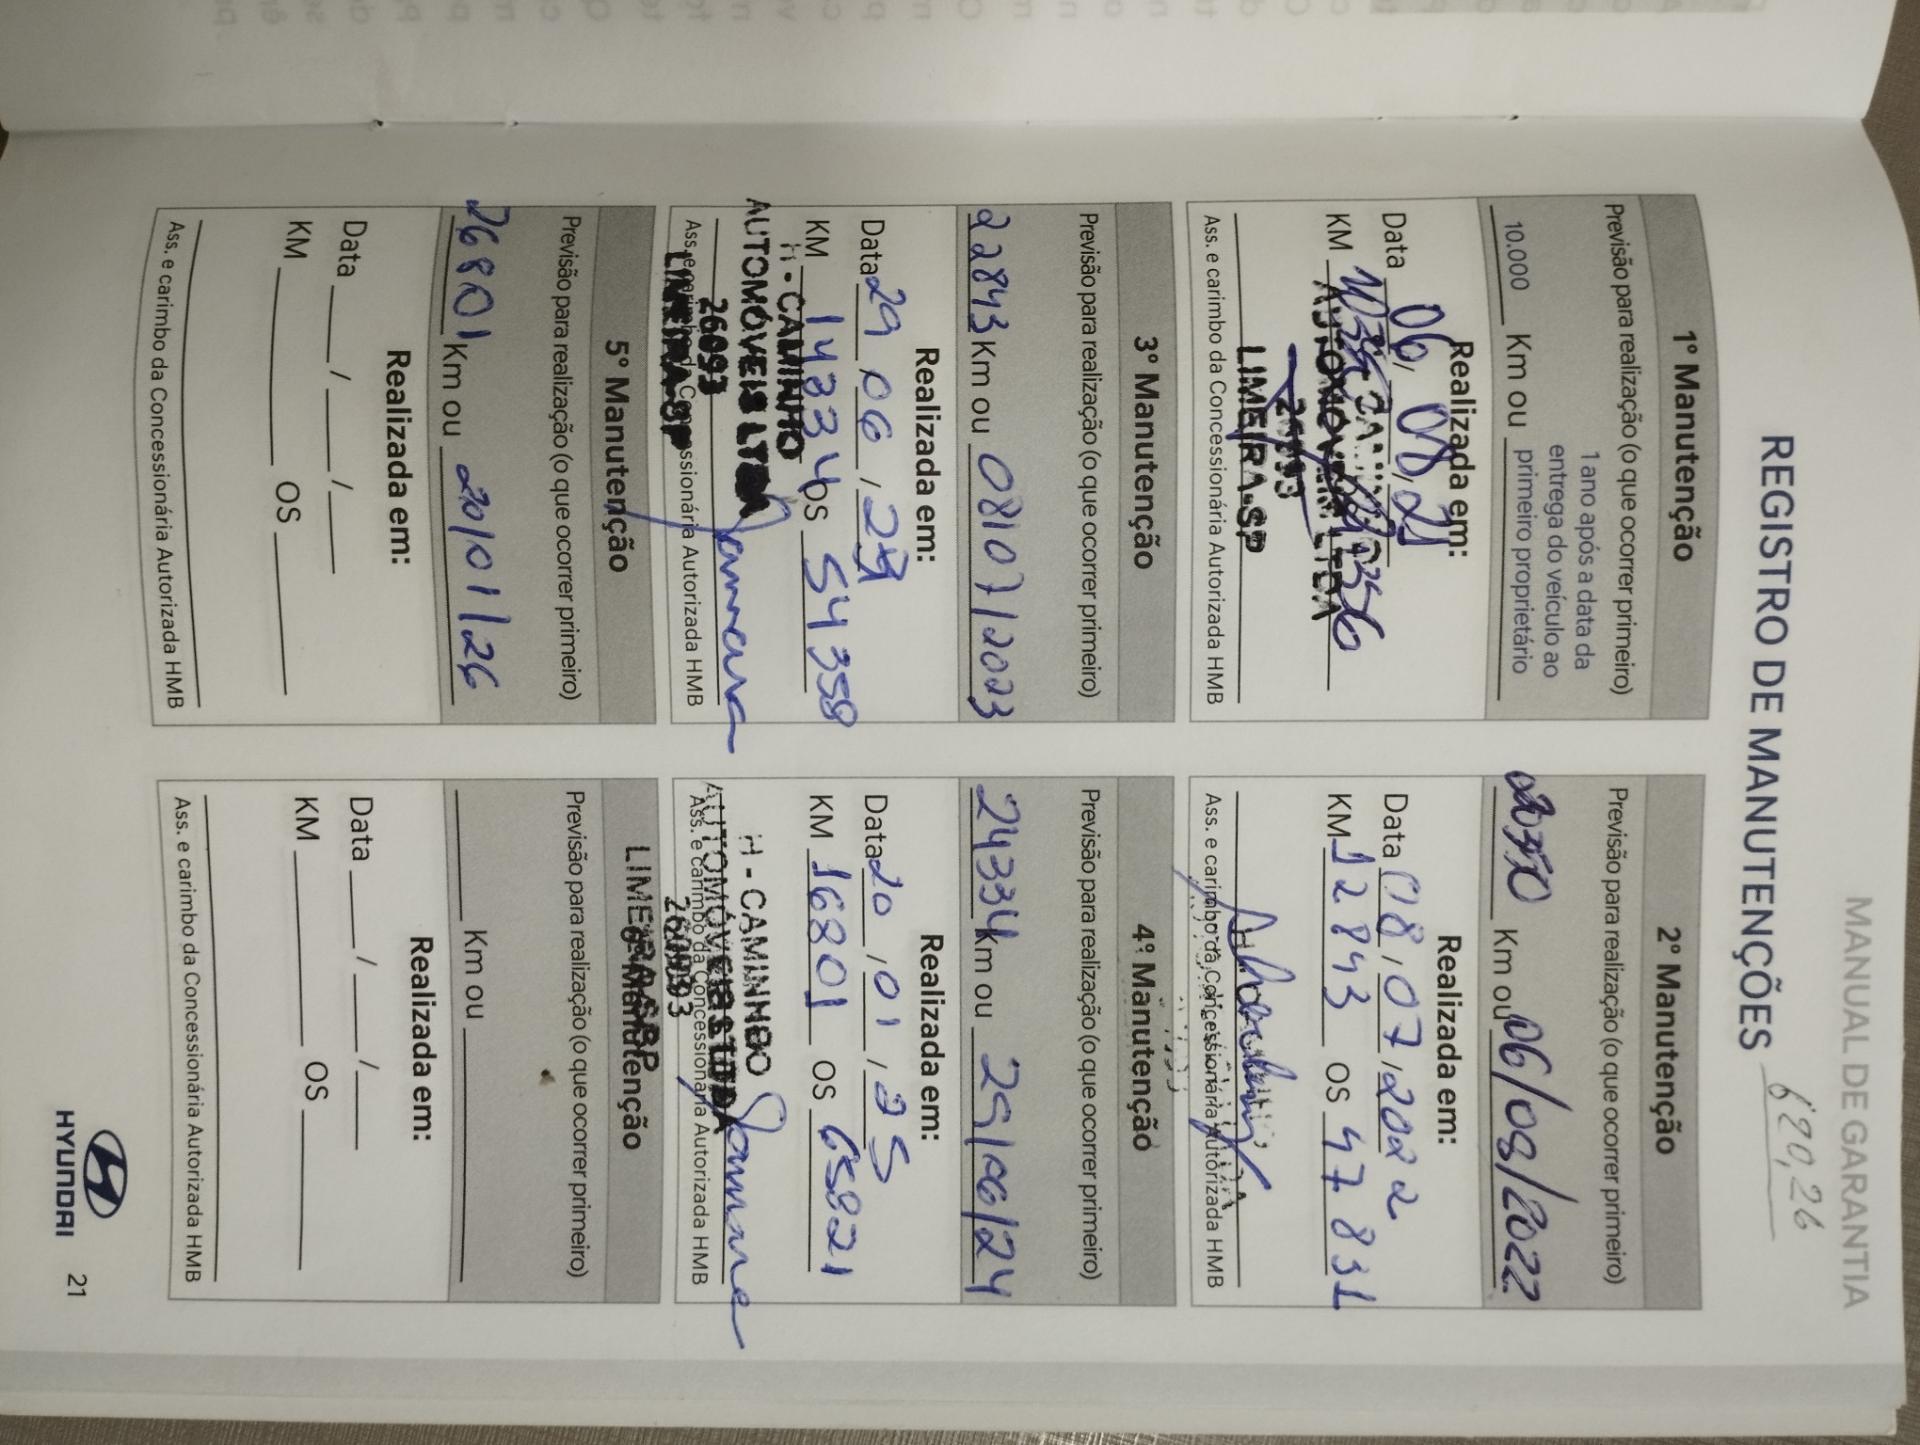 MANUAL DE GARANTIA
REGISTRO DE MANUTENÇÕES
620,26
1º Manutenção
Previsão para realização (o que ocorrer primeiro)
10.000 Km ou 1 ano após a data da
entrega do veículo ao
primeiro proprietário
Realizada em:
Data 06/08/21
KM
AUTOMÓVEIS LTDA
26093
LIMEIRA-SP
Ass. e carimbo da Concessionária Autorizada HMB
2º Manutenção
Previsão para realização (o que ocorrer primeiro)
Km ou 06/08/2022
Realizada em:
Data 08/07/2022
KM 12843 OS 47831
Ass. e carimbo da Concessionária Autorizada HMB
3º Manutenção
Previsão para realização (o que ocorrer primeiro)
22843 Km ou 08/07/2023
Realizada em:
Data 29/06/23
KM 14334 OS 54358
H - CAMINHO
AUTOMÓVEIS LTDA
26093
LIMEIRA-SP
Ass. e carimbo da Concessionária Autorizada HMB
4º Manutenção
Previsão para realização (o que ocorrer primeiro)
24334 Km ou 29/06/24
Realizada em:
Data 20/01/25
KM 16801 OS 65821
H - CAMINHO
AUTOMÓVEIS LTDA
26093
LIMEIRA-SP
Ass. e carimbo da Concessionária Autorizada HMB
5º Manutenção
Previsão para realização (o que ocorrer primeiro)
26801 Km ou 20/01/26
Realizada em:
Data ___/___/___
KM ______ OS ______
Ass. e carimbo da Concessionária Autorizada HMB
6º Manutenção
Previsão para realização (o que ocorrer primeiro)
______ Km ou ______
Realizada em:
Data ___/___/___
KM ______ OS ______
Ass. e carimbo da Concessionária Autorizada HMB
HYUNDAI 21